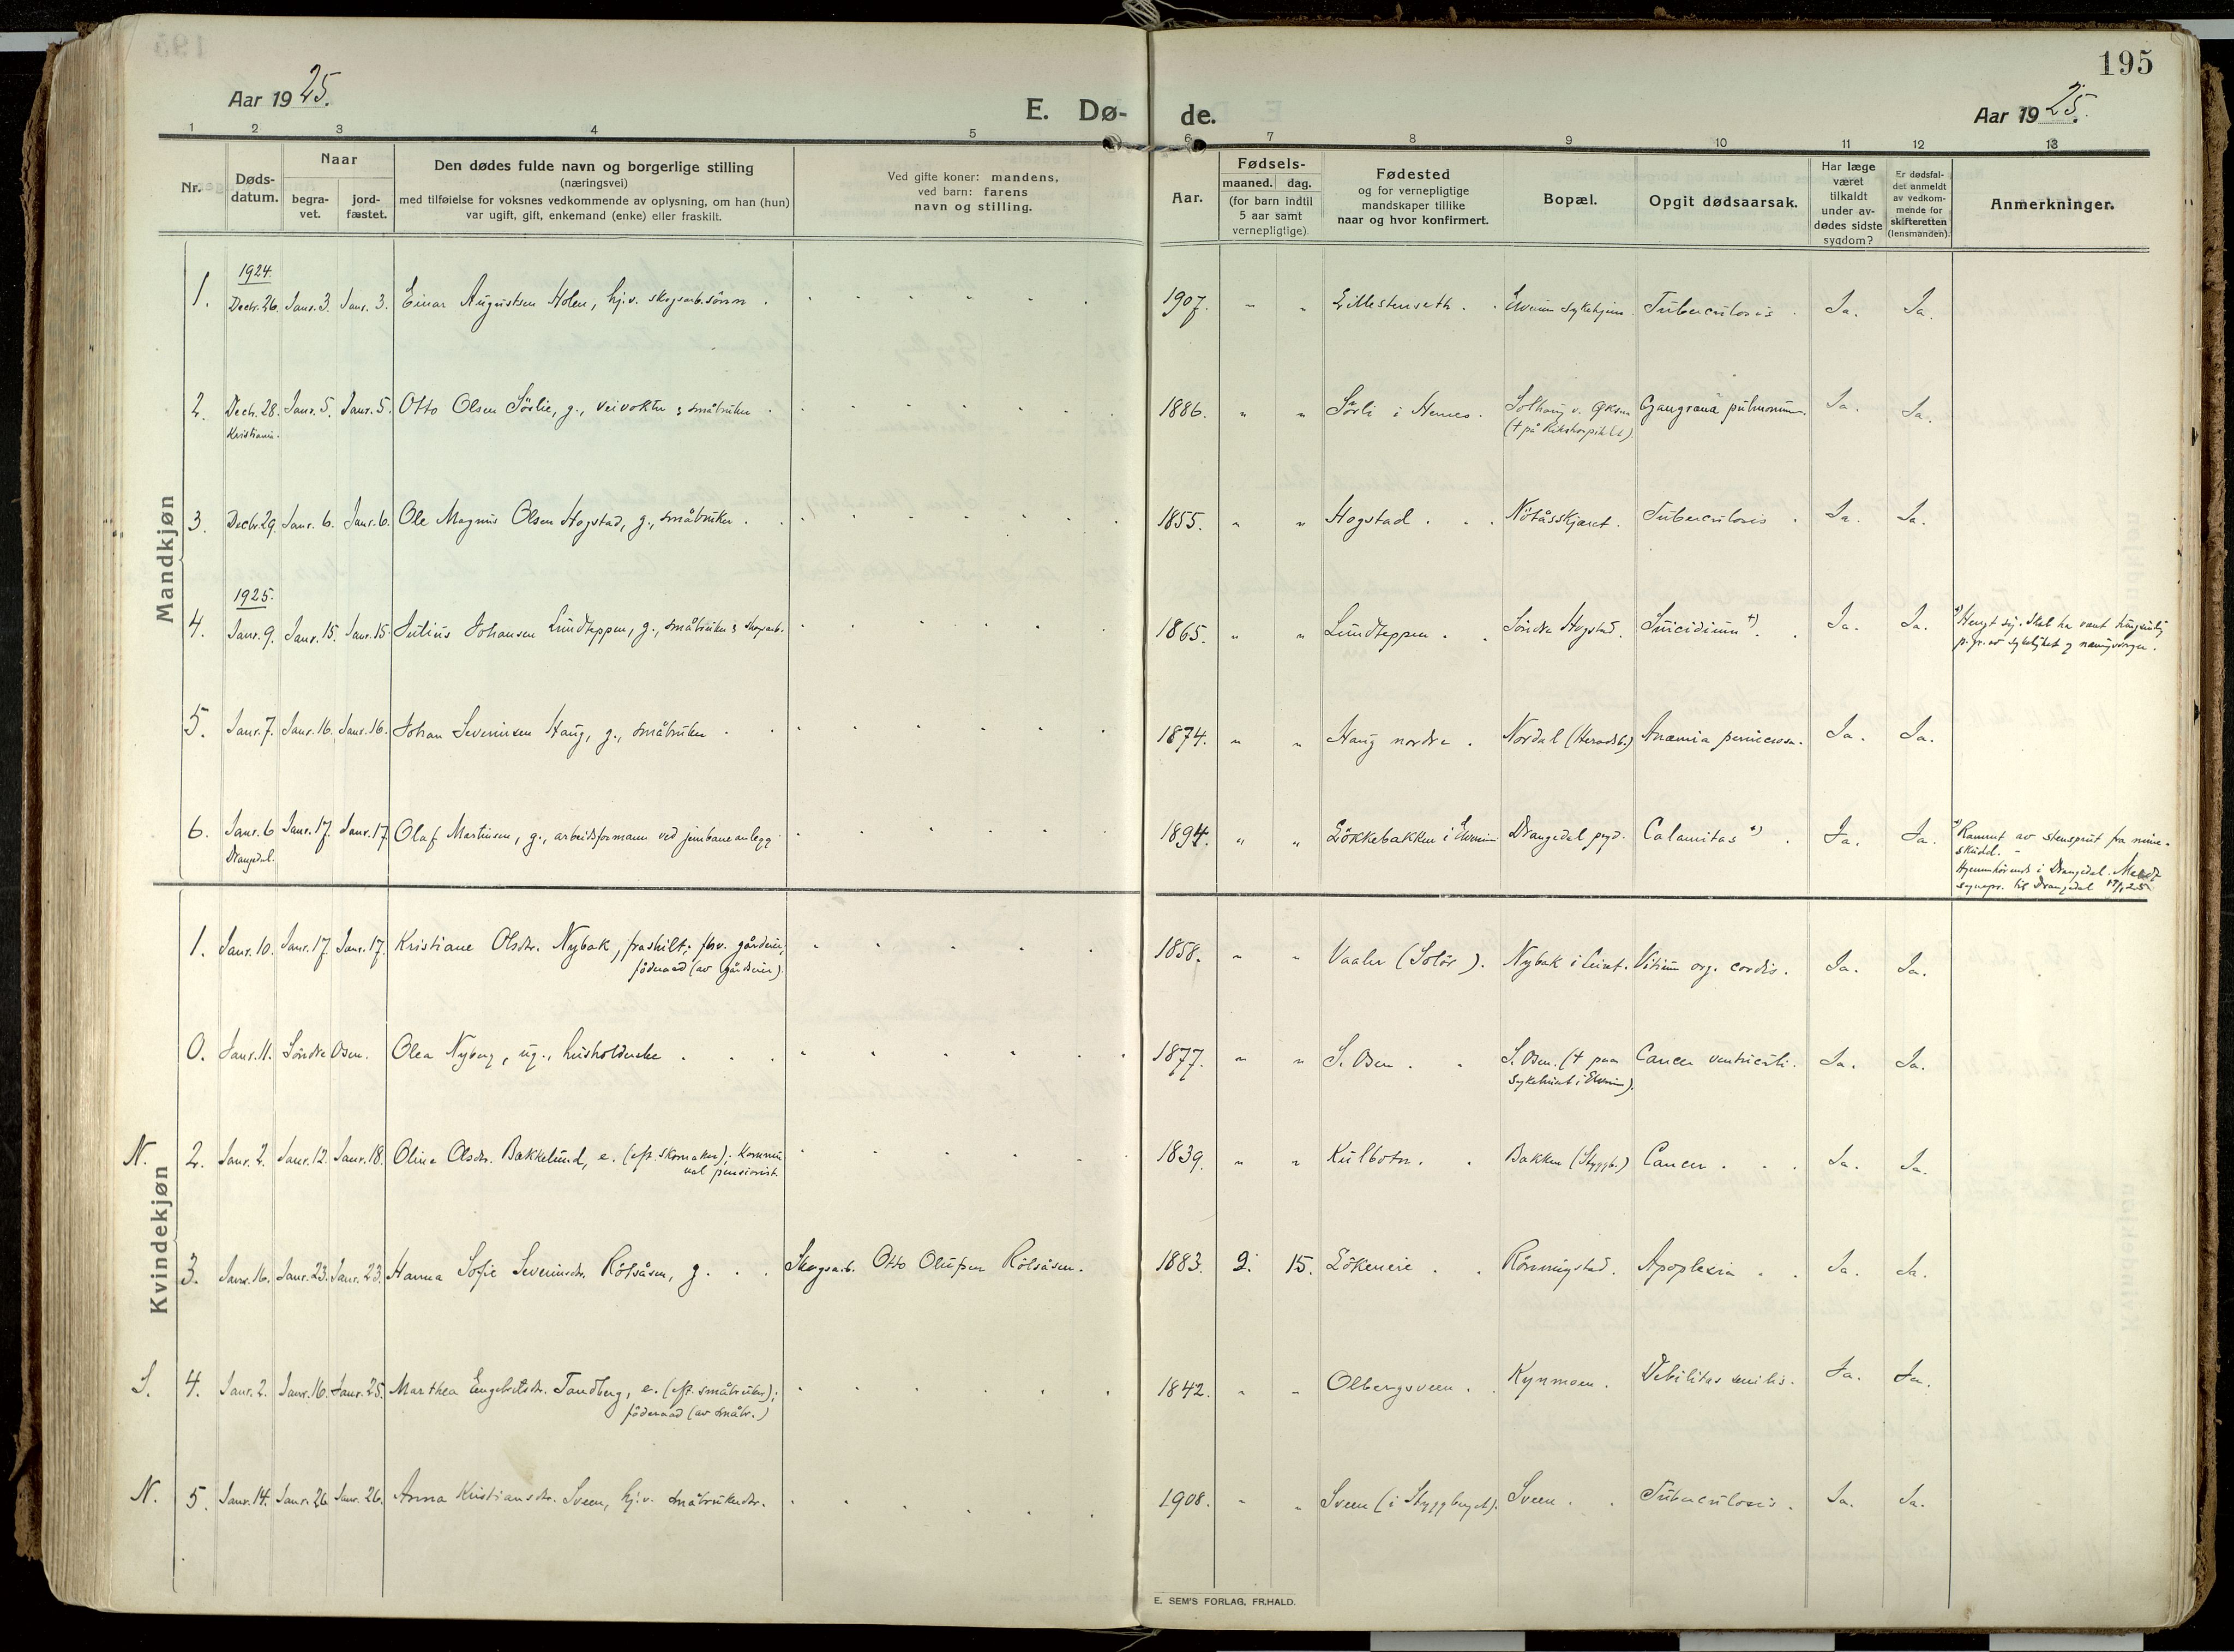 195
Aar 1925.
E. Dø- de.
Aar 1925.
1 2 3 4 5 6 7 8 9 10 11 12 13
Nr.
Døds-
datum.
Naar
begra-
vet.
jord-
fæstet.
Den dødes fulde navn og borgerlige stilling
(næringsvei)
med tilføielse for voksnes vedkommende av oplysning, om han (hun)
var ugift, gift, enkemand (enke) eller fraskilt.
Ved gifte koner: mandens,
ved barn: farens
navn og stilling.
Aar.
Fødsels-
maaned. dag.
(for barn indtil
5 aar samt
vernepligtige)
Fødested
og for vernepligtige
mandskaper tillike
naar og hvor konfirmert.
Bopæl.
Opgit dødsaarsak.
Har læge
været
tilkaldt
under av-
dødes sidste
sygdom?
Er dødsfal-
det anmeldt
av vedkom-
mende for
skifteretten
(lensmanden).
Anmerkninger.
Mandkjøn
1924.
1. Decbr. 26. Janr. 3. Janr. 3. Einar Augustsen Holen, hj.v. skogsarb.sönn . 1907. " " Lillestenseth . Elverum sykehjem. Tuberculosis . Ja. Ja.
2. Decb. 28. Janr. 5. Janr. 5. Otto Olsen Sörlie, g., veivokter & småbruker . 1886. " " Sörli i Hernes . Solhaug v. Gangræna pulmonum. Ja. Ja.
Kristiania. († på Rikshospitalet).
3. Decbr. 29. Janr. 6. Janr. 6. Ole Magnus Olsen Hogstad, g., småbruker . 1855. " " Hogstad . Nötåsskjæret . Tuberculosis . Ja. Ja.
1925.
4. Janr. 9. Janr. 15. Janr. 15. Julius Johansen Lundteppen, g., småbruker & skogsarb. 1865. " " Lundteppen . Söndre Hogstad . Suicidium *) . Ja. Ja. *) Hengt sig. Skal ha vært tungsindig
p.gr. av sykelighet og næringssorger.
5. Janr. 7. Janr. 16. Janr. 16. Johan Severinsen Haug, g., småbruker . 1874. " " Haug nordre . Nordal (Heradsb.) Anæmia perniciosa. Ja. Ja.
6. Janr. 6 Janr. 17. Janr. 17. Olaf Martinsen, g., arbeidsformann ved jernbaneanlegg . 1894. " " Lökkebakken i Elverum Drangedal pgd. Calamitas *) . Ja. Ja. *) Rammet av stensprut fra mine-
Drangedal. skudd. -
Hjemmhörende i Drangedal. Meldt
sognepr. til Drangedal 17/1 25
Kvindekjøn
1. Janr. 10. Janr. 17. Janr. 17. Kristiane Olsdtr. Nybak, fraskilt; fhv. gårdeier, 1858. " " Vaaler (Solör). Nybak i Leiret. Vitium org. cordis. Ja. Ja.
föderaad (av gårdeier).
0. Janr. 11. Söndre Osen. Olea Nyberg, ug., husholderske . 1877. " " S. Osen . S. Osen. († paa Cancer ventriculi. Ja. Ja.
sykehuset i Elverum).
N. 2. Janr. 2. Janr. 12. Janr. 18. Oline Olsdtr. Bakkelund, e. (eft. skomaker). Kommu- 1839. " " Kulbotn . Bakken (Styggb.) Cancer . Ja. Ja.
nal pensionist.
3. Janr. 16. Janr. 23. Janr. 23. Hanna Sofie Severinsdtr. Rötsåsen, g. . Skogsarb. Otto Olufsen Rötsåsen. 1883. 2. 15. Lökeneie . Römmingstad. Apoplexia . Ja. Ja.
S. 4. Janr. 2. Janr. 16. Janr. 25. Marthea Engebretsdtr. Tandberg, e. (eft. småbruker); 1842. " " Olbergsveen . Kynmoen . Debilitas senilis. Ja. Ja.
föderaad (av småbr.)
N. 5. Janr. 14. Janr. 26 Janr. 26. Anna Kristiansdtr. Sveen, hj.v. småbrukerdtr. 1908. " " Sveen (i Styggberget). Sveen . Tuberculosis . Ja. Ja.
E. SEM'S FORLAG, FR.HALD.